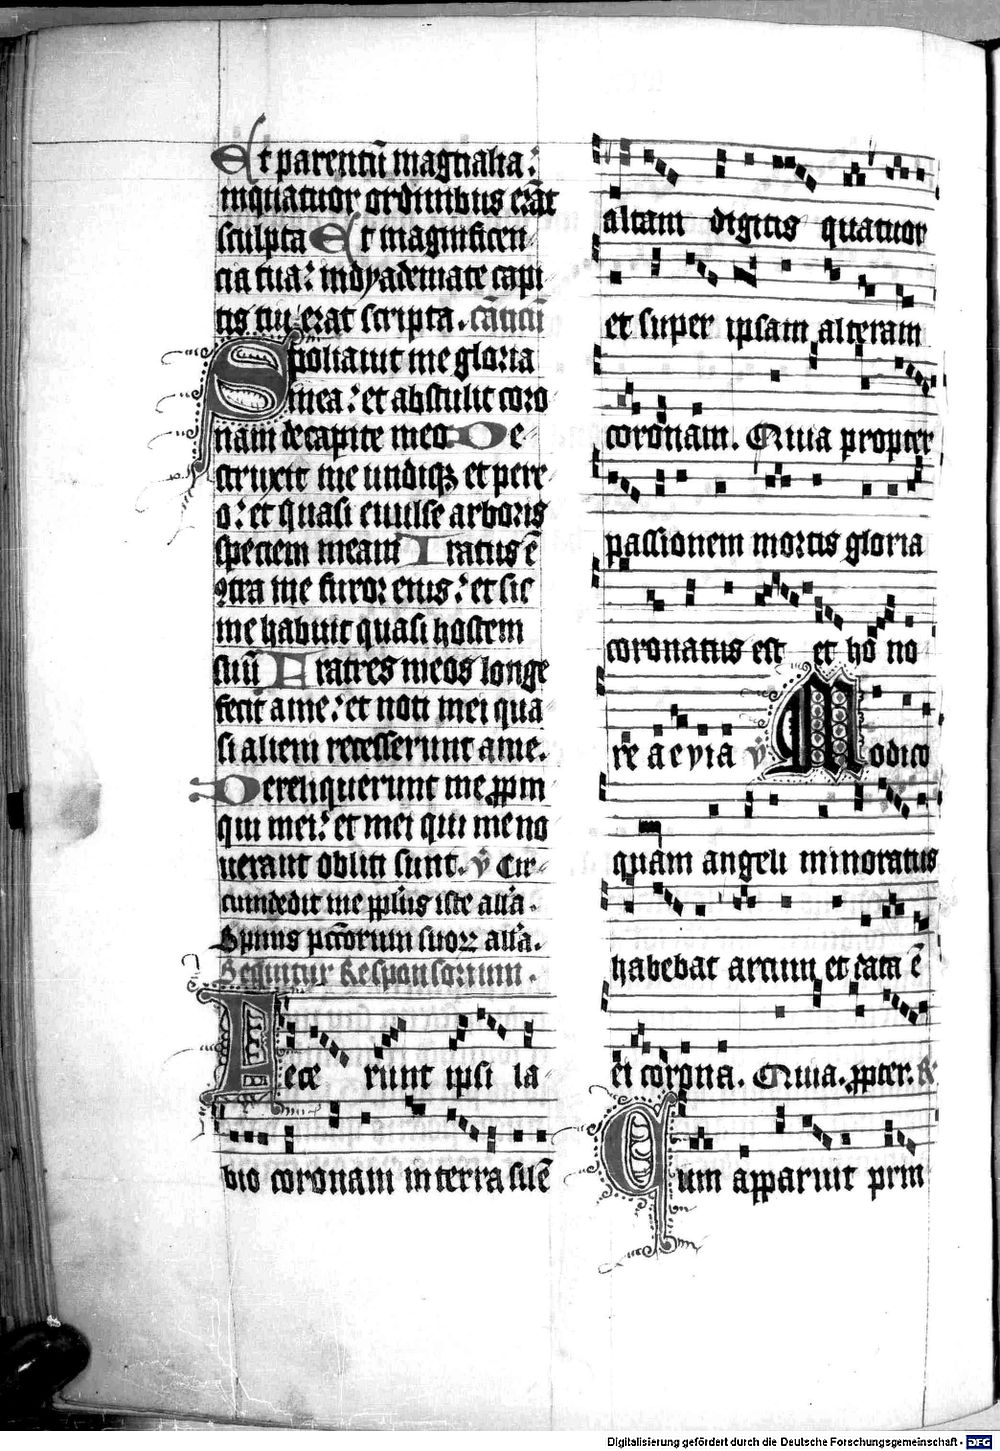 Et parentū magnalia:
inquatuor ordinibus erāt
sculpta Et magnificen
cia tua: indyademate capi
tis tui erat scripta. cāticū
Spoliauit me gloria
mea: et abstulit coro
nam decapite meo De
struxit me undiqꝫ et pere
o: et quasi euulse arboris
speciem meam Iratus ē
ꝯtra me furor eius: et sic
me habuit quasi hostem
suū Fratres meos longe
fecit a me: et noti mei qua
si alieni recesserunt a me.
Dereliquerunt me ꝓpin
qui mei: et mei qui me no
uerant obliti sunt. ꝟ Cir
cumdedit me ppl'us iste all'a.
Spinis pctōrum suoꝝ all'a.
Seqꝫuntur Responsorium.
Fecerunt ipsi la
bio coronam in terra silē
altam digitis quatuor
et super ipsam alteram
coronam. Quia propter
passionem mortis gloria
coronatus est et ho no
re aeuia ꝟ Modico
quam angeli minoratus
habebat artium et data ē
ei corona. Quia. ꝓpter. R
Qum apparuit prin